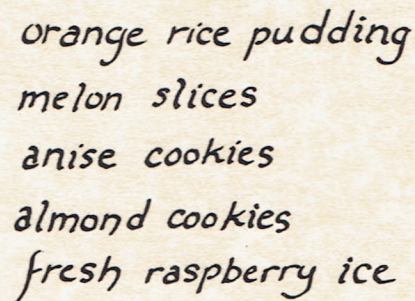 orange rice pudding
melon slices
anise cookies
almond cookies
fresh raspberry ice